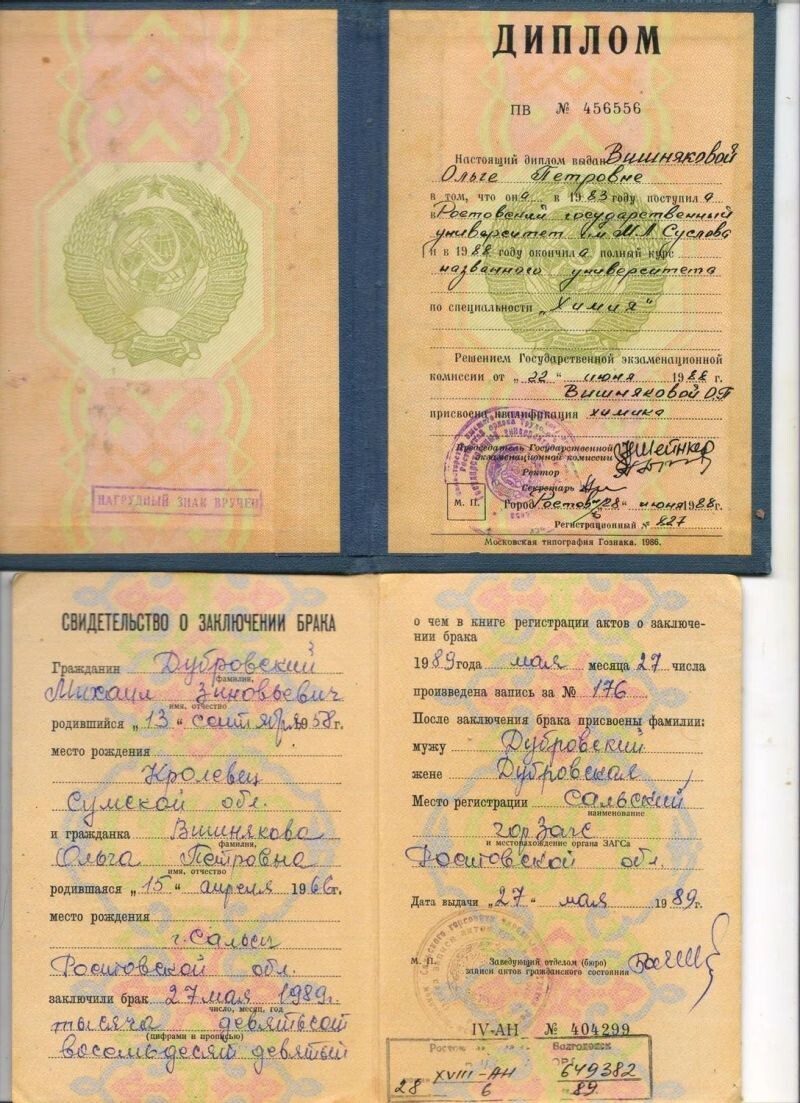 НАГРУДНЫЙ ЗНАК ВРУЧЕН
ДИПЛОМ
ПВ № 456556
Настоящий диплом выдан Вишняковой
Ольге Петровне
в том, что она в 1983 году поступила
в Ростовский государственный
университет им М.А. Суслова
и в 1988 году окончила полный курс
названного университета
по специальности „Химия"
Решением Государственной экзаменационной
комиссии от „22" июня 1988 г.
Вишняковой О.П
присвоена квалификация химика
Председатель Государственной
экзаменационной комиссии
Ректор
Секретарь
М. П. Город Ростов „28" июня 1988 г.
Регистрационный № 827
Московская типография Гознака. 1986.
СВИДЕТЕЛЬСТВО О ЗАКЛЮЧЕНИИ БРАКА
Гражданин Дубровский
фамилия,
Михаил Зиновьевич
имя, отчество
родившийся „13" сентября 1958 г.
место рождения
Кролевец
Сумской обл.
и гражданка Вишнякова
фамилия,
Ольга Петровна
имя, отчество
родившаяся „15" апреля 1966 г.
место рождения
г. Сальск
Ростовской обл.
заключили брак 27 мая 1989 г.
число, месяц, год
тысяча девятьсот
(цифрами и прописью)
восемьдесят девятый
о чем в книге регистрации актов о заключе-
нии брака
1989 года мая месяца 27 числа
произведена запись за № 176
После заключения брака присвоены фамилии:
мужу Дубровский
жене Дубровская
Место регистрации Сальский
наименование
горЗагс
и местонахождение органа ЗАГСа
Ростовской обл.
Дата выдачи „27" мая 1989 г.
М. П. Заведующий отделом (бюро)
записи актов гражданского состояния
IV-АН № 404299
Волгодонск
XVIII-АН 649382
28 6 89